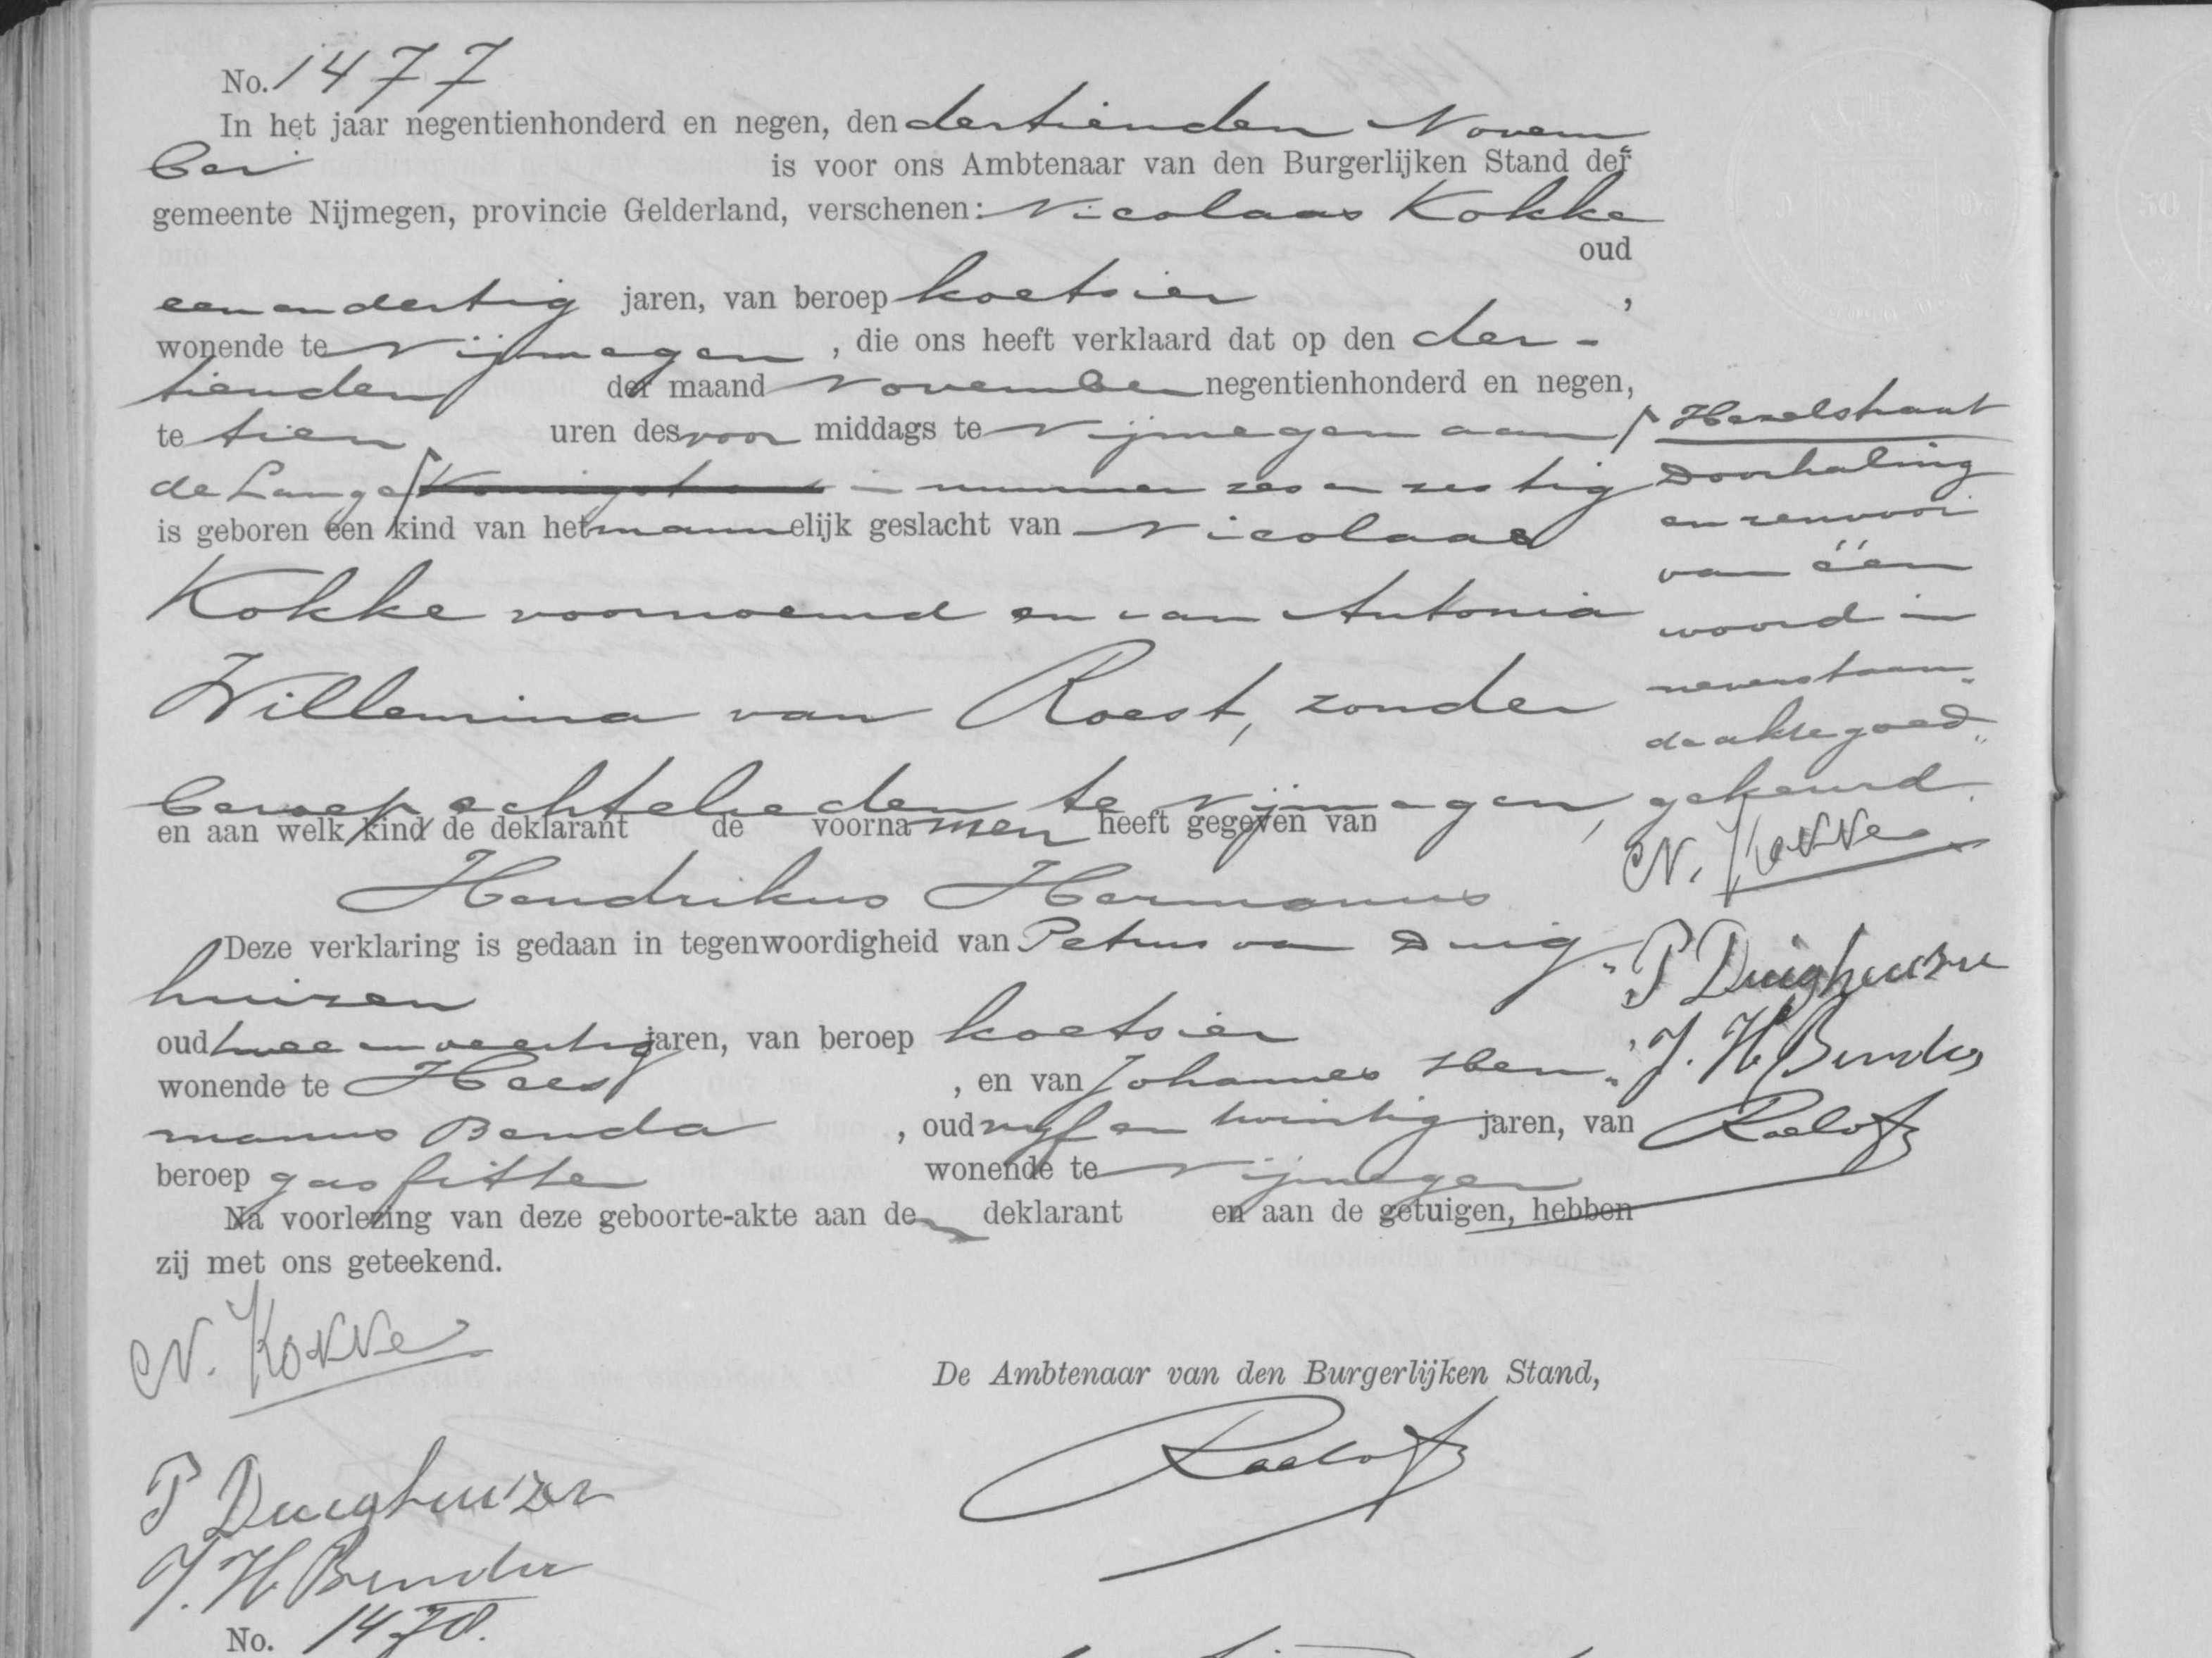 No. 1477
In het jaar negentienhonderd en negen, den dertienden Novem„
ber is voor ons Ambtenaar van den Burgerlijken Stand der
gemeente Nijmegen, provincie Gelderland, verschenen: Nicolaas Kokke
oud
eenendertig jaren, van beroep koetsier ,
wonende te Nijmegen , die ons heeft verklaard dat op den der-
tienden der maand November negentienhonderd en negen,
te tien uren des voor middags te Nijmegen aan
de Lange Koningstraat in nummer zes en zestig
is geboren een kind van het mannelijk geslacht van Nicolaas
Kokke voornoemd en van Antonia
Willemina van Roest, zonder
beroep echtelieden te Nijmegen,
en aan welk kind de deklarant de voornamen heeft gegeven van
Hendrikus Hermanus
Deze verklaring is gedaan in tegenwoordigheid van Petrus van Duig„
huizen
oud twee en veertig jaren, van beroep koetsier
wonende te Hees , en van Johannes Her„
manus Benda , oud vyf en twintig jaren, van
beroep gasfitter wonende te Nijmegen
Na voorlezing van deze geboorte-akte aan den deklarant en aan de getuigen, hebben
zij met ons geteekend.
Hezelstraat
Doorhaling
en renvooi
van één
woord in
nevenstaan„
de akte goed„
gekeurd.
N. Kokke
P Duighuizen
J. H Bender
Roelofs
N. Kokke
De Ambtenaar van den Burgerlijken Stand,
Roelofs
P Duighuizen
J. H Bender
No. 1478.